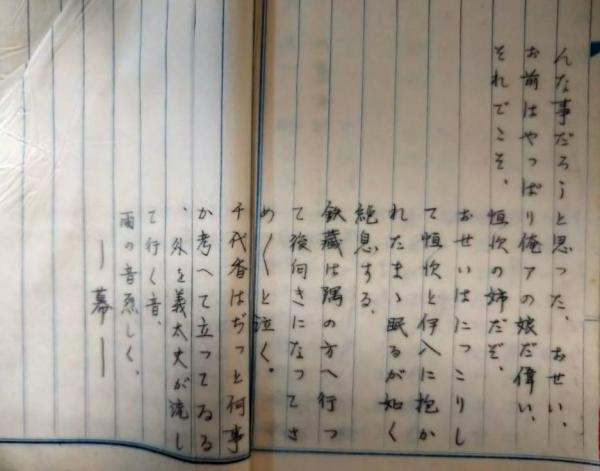 んな事だろうと思った、おせい、
お前はやっぱり俺アの娘だ偉い、
それでこそ、恒次の姉だぞ、
おせいはにつこりし
て恒次と伊八に抱か
れたまゝ眠るが如く
絶息する、
鉄蔵は隅の方へ行つ
て後向きになつてさ
め〱と泣く。
千代香はぢつと何事
か考へて立つてゐる
、外を義太夫が流し
て行く音、
雨の音悲しく、
―幕―